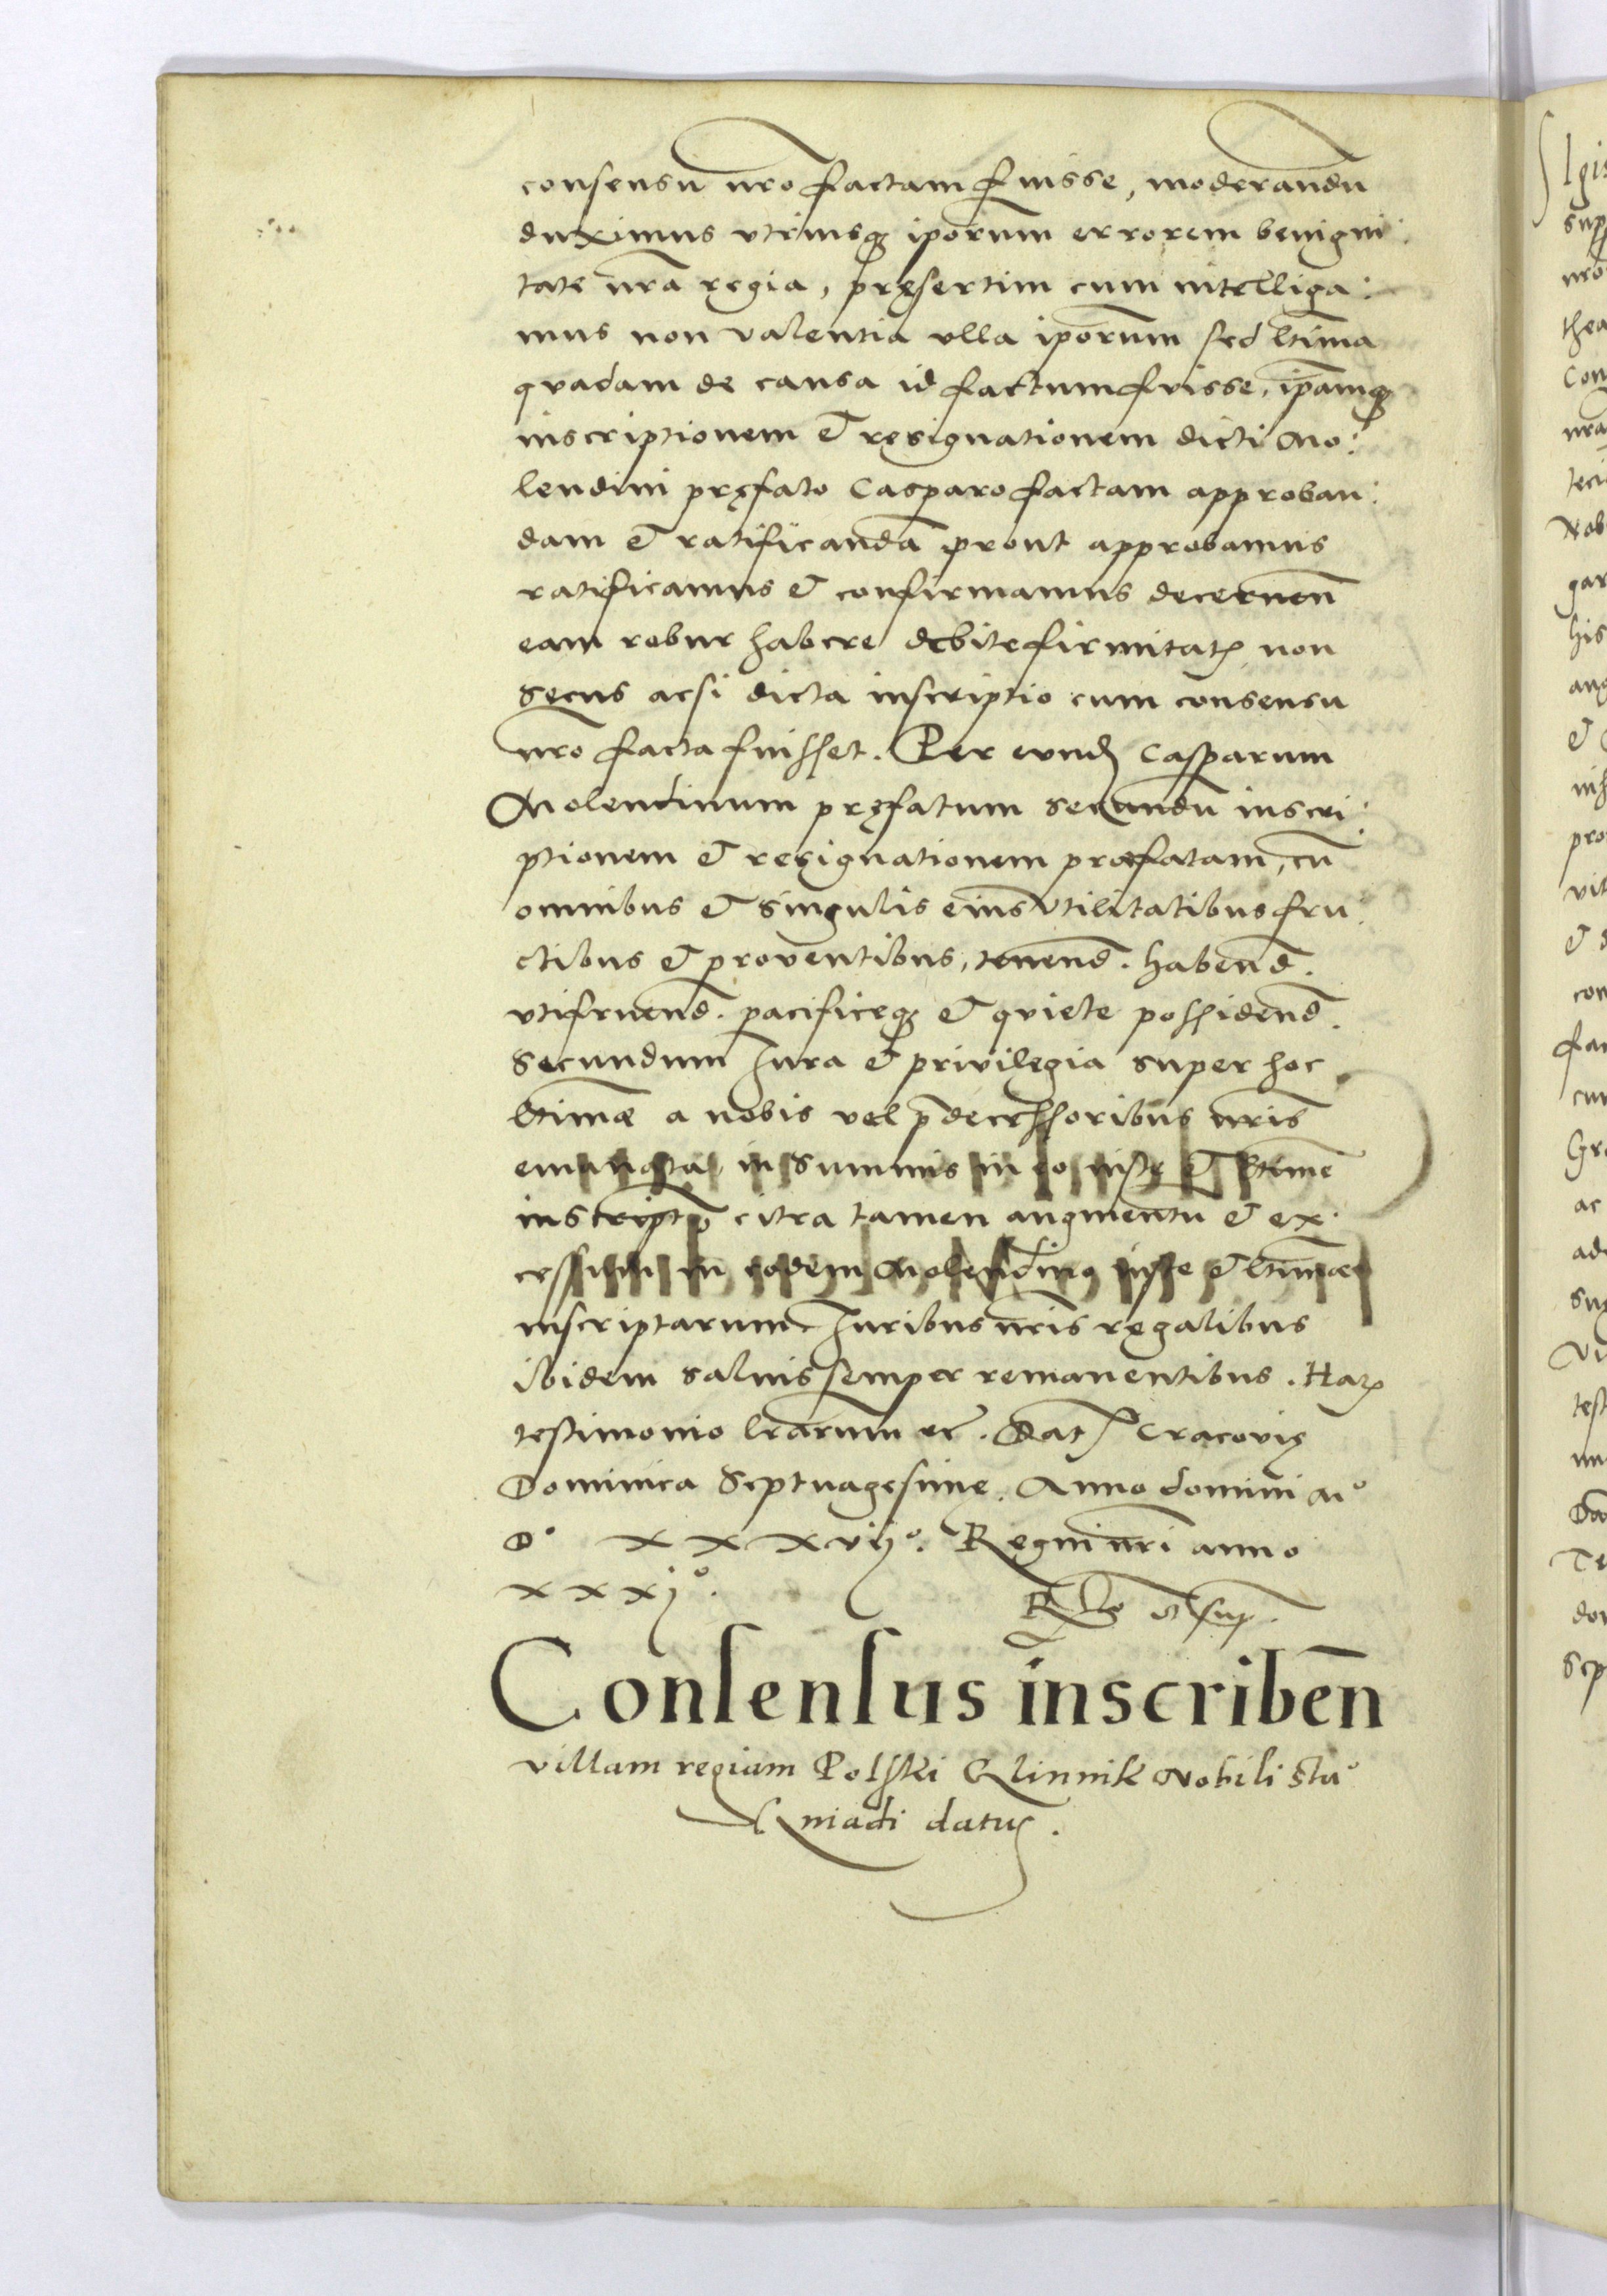 consensu nro factam fuisse, moderandu
duximus vtriusq iporum errorem benigni:
tate nra regia, pręsertim cum intelliga:
mus non valentia vlla iporum sed ltima
quadam de causa id factum fuisse, ipamq
inscriptionem et resignationem dicti Mo:
lendini pręfato Casparo factam approban:
dam et ratificanda prout approbamus
ratificamus et confirmamus decernen
eam robur habere debite firmitatis non
secus acsi dicta inscriptio cum consensu
nro facta fuisset. Per eund Casparum
Molendinum pręfatum secundu inscri:
ptionem et resignationem praefatam, cu
omnibus et singulis eius vtilitatibus fru:
ctibus et proventibus, tenend. habend.
vtifruend. pacificeq et quiete possidend.
Secundum Jura et privilegia super hoc
ltimae a nobis vel pdecessoribus nris
emanata, in summis in eo iuste et ltime
inscriptis citra tamen augmentu et ex:
cessum in eodem Molendino iuste et ltimae
inscriptarum Juribus nris regalibus
ibidem salvis semper remanentibus. Harum
testimonio lrarum etc. Dat Cracovię
Dominica Septuagesime. Anno domini Mo
Do xxxvijo. Regni nri anno
xxxjo.
Rlo vt sup.
Consensus inscriben
villam regiam Polski Klinnik Nobili Sta
Kmadi datus.